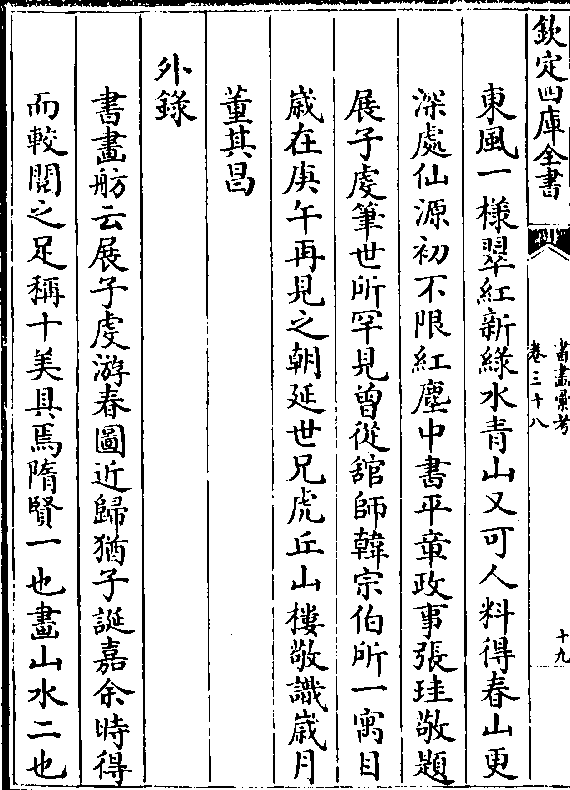 欽定四庫全書
書畫彙考
卷三十八
十九
東風一様翠紅新綠水青山又可人料得春山更
深處仙源初不限紅塵中書平章政事張珪敬題
展子䖍筆世所罕見曾從舘師韓宗伯所一寓目
歳在庚午再見之朝延世兄虎丘山樓敬識歳月
董其昌
外錄
書畫舫云展子䖍游春圖近歸猶子誕嘉余時得
而較閱之足稱十美具焉隋賢一也畫山水二也